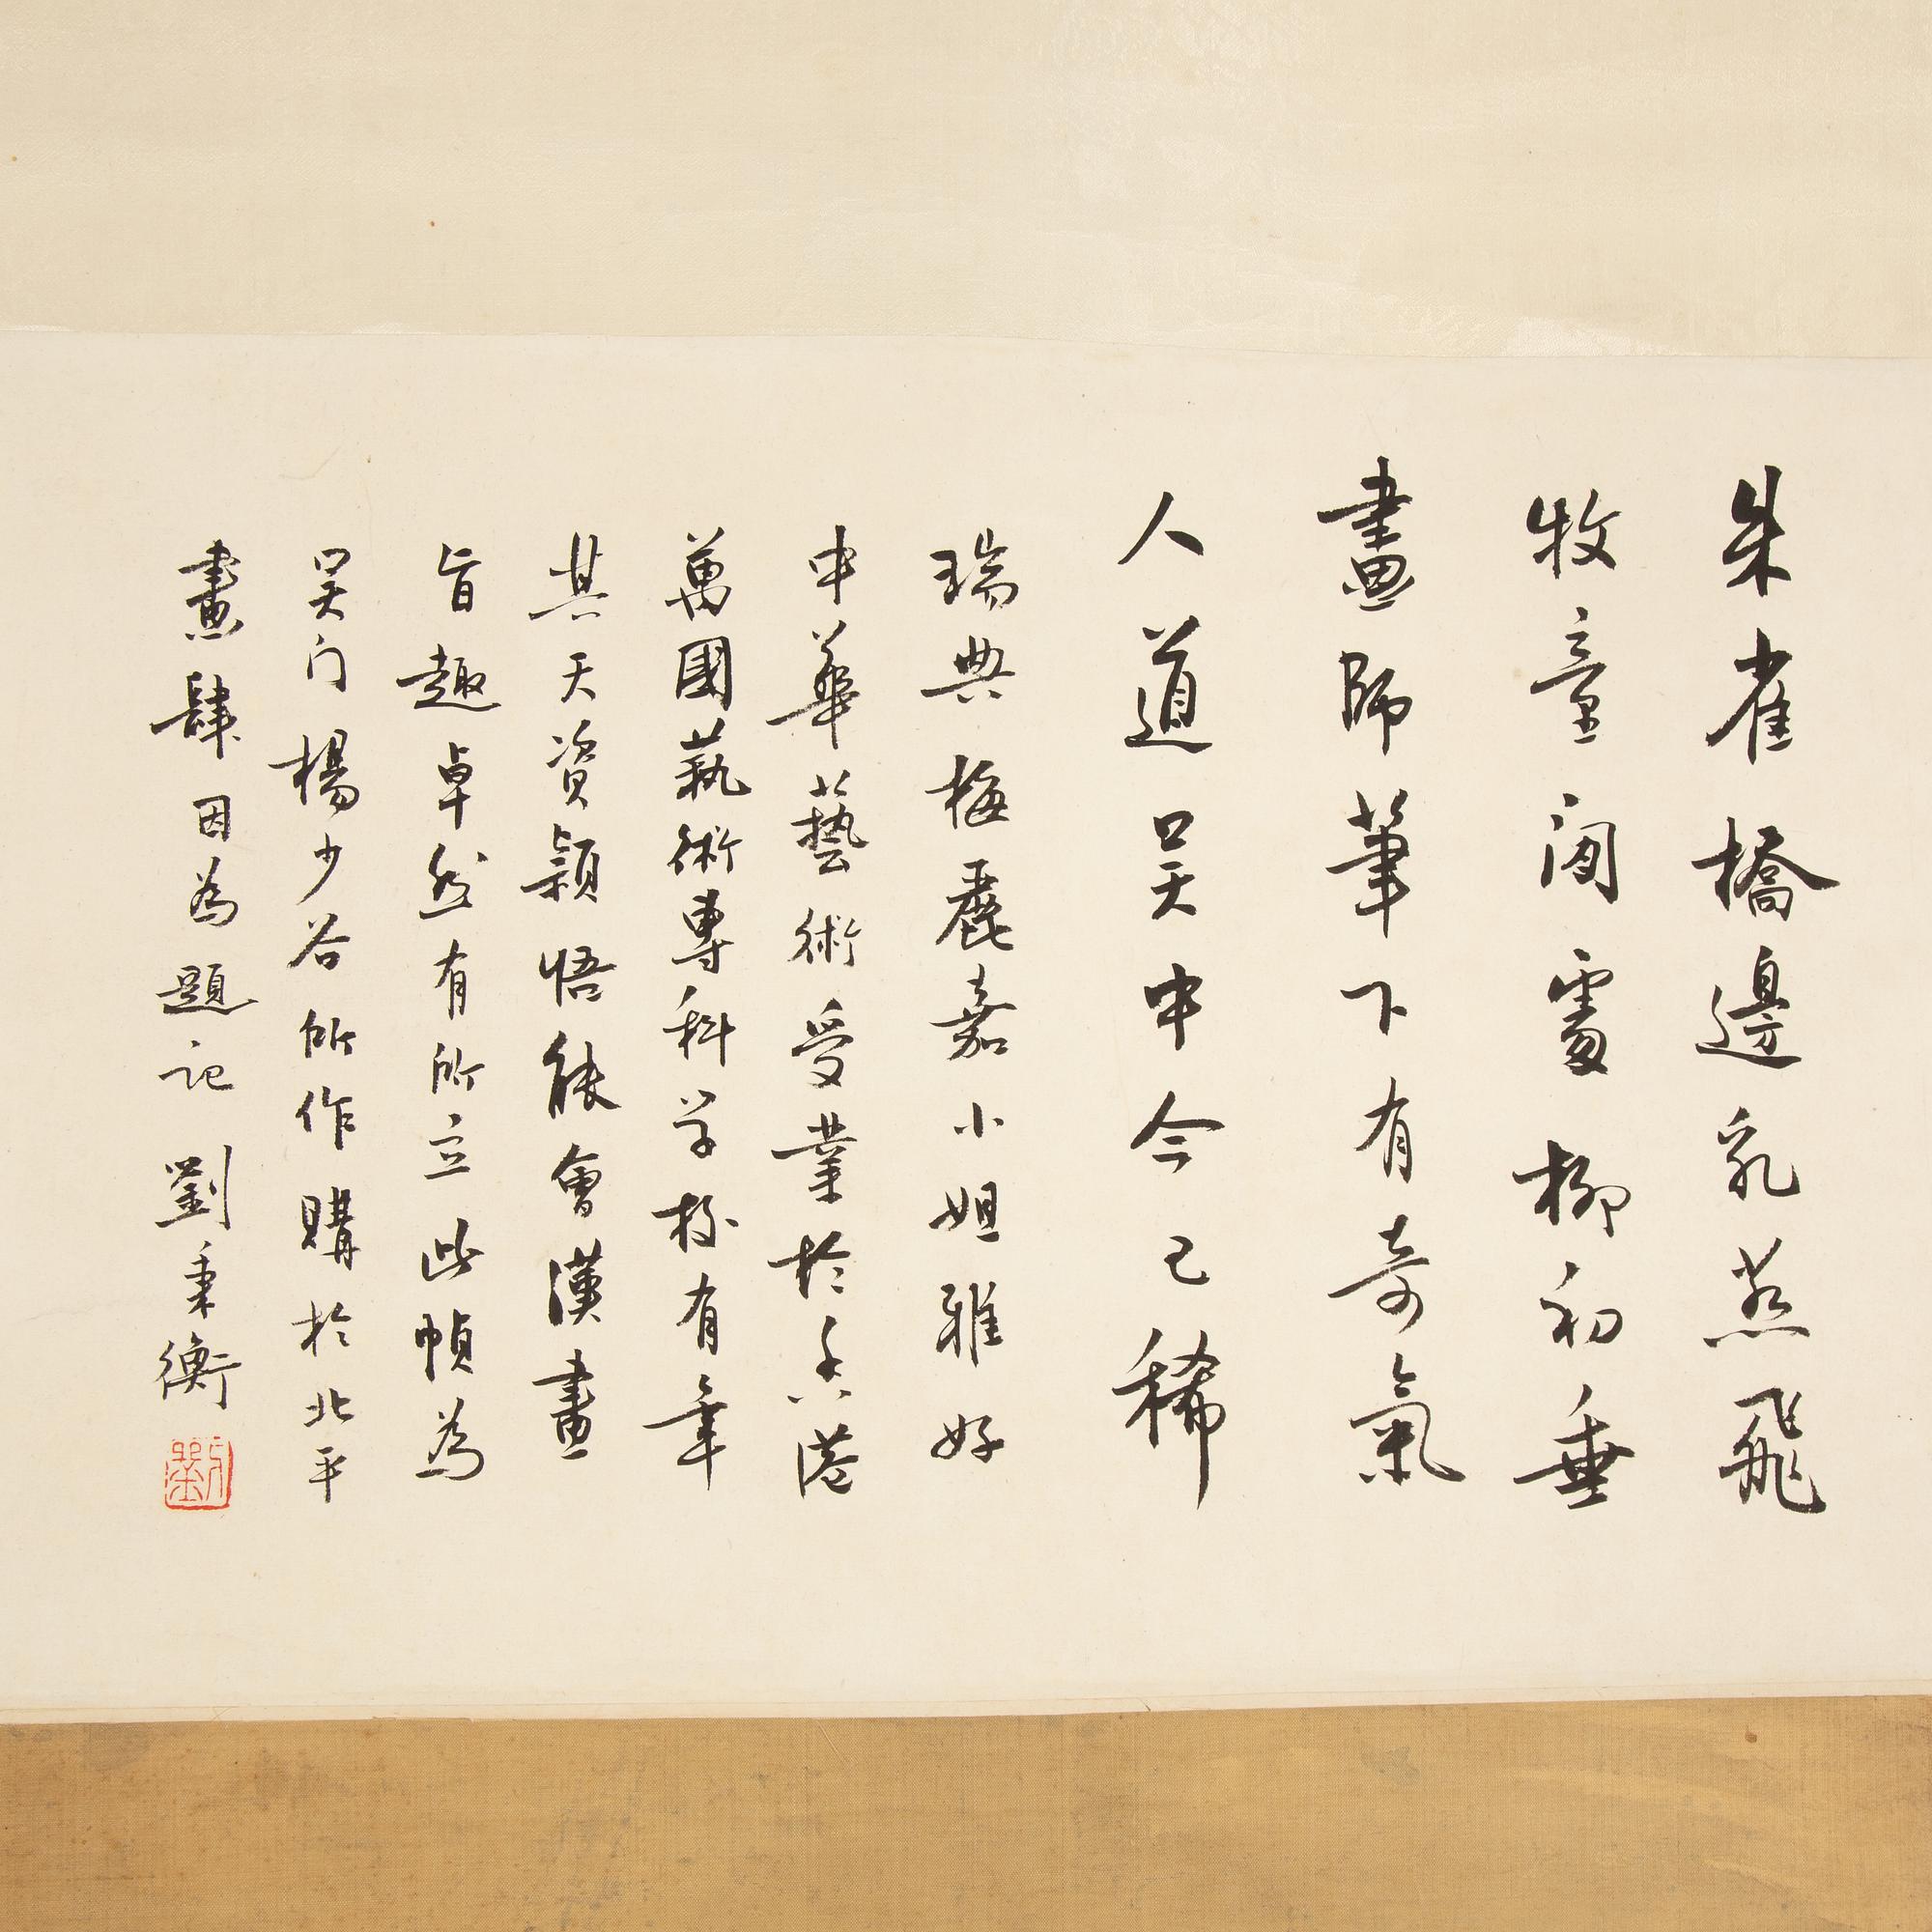 朱雀橋邊乳燕飛
牧童閑處柳初垂
畫師筆下有奇氣
人道吴中今已稀
瑞典梅麗嘉小姐雅好
中華藝術受業於香港
萬國藝術專科学校有年
其天資穎悟能會漢畫
旨趣卓然有所立此幀為
吴门楊少谷所作購於北平
畫肆因為題記劉秉衡